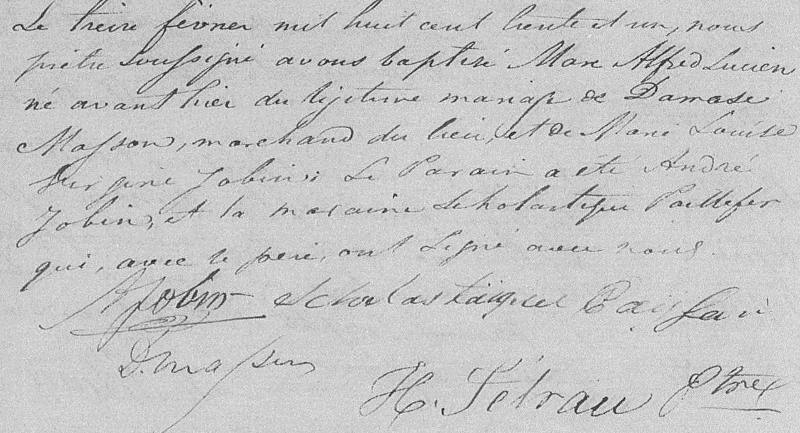 Le treize février mil huit cent trente et un, nous
prêtre soussigné avons baptisé Marc Alfred Lucien
né avant hier du légitime mariage de Damase
Masson, marchand du lieu, et de Marie Louise
Virginie Jobin; Le Parain a été André
Jobin, et la maraine Scholastique Paillefer
qui, avec le père, ont signé avec nous.
AJobin Scholastique
D. Masson
H. Têtrau Ptre